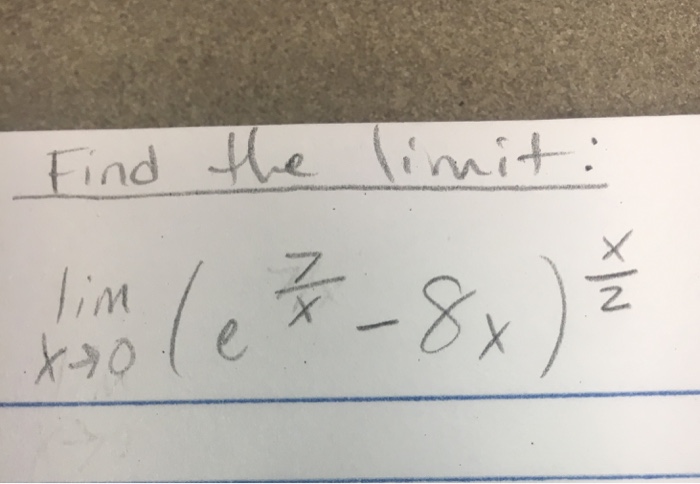 Find the limit:
lim x→0 (e^(7/x) - 8x)^(x/2)